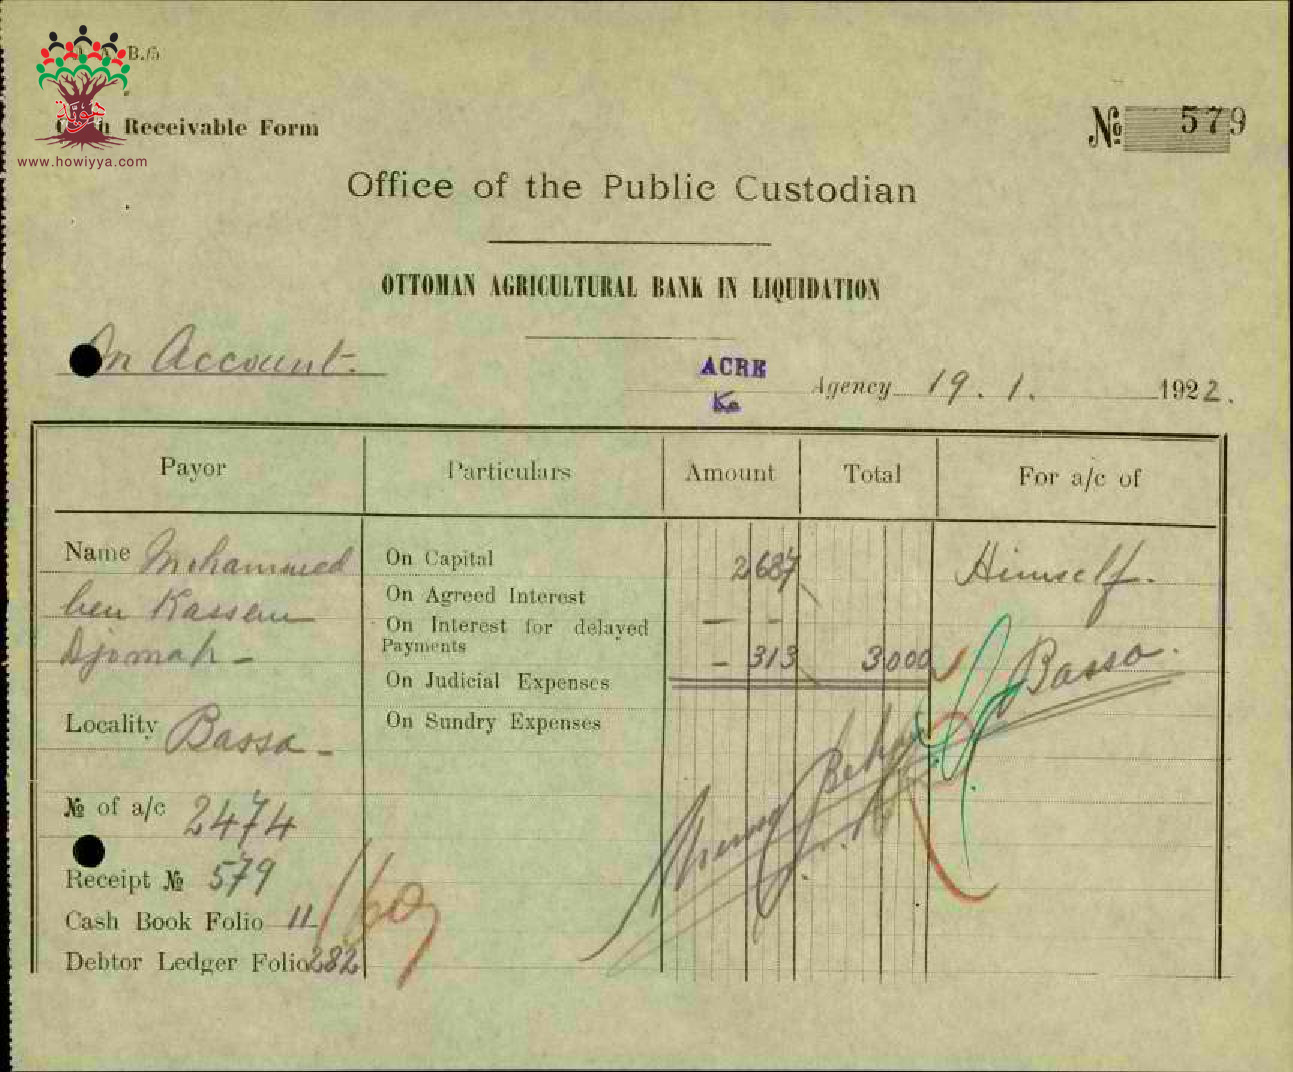 B.6
Receivable Form
www.howiyya.com
№ 579
Office of the Public Custodian
OTTOMAN AGRICULTURAL BANK IN LIQUIDATION
On Account.
ACRE
Agency 19.1. 1922.
Payor Particulars Amount Total For a/c of
Name Mohammed On Capital 2687 Himself.
ben Kassem On Agreed Interest
On Interest for delayed — -
Djomah - Payments - 313 3000 Bassa.
On Judicial Expenses
Locality Bassa - On Sundry Expenses
№ of a/c 2474
Receipt № 579
Cash Book Folio 11
Debtor Ledger Folio 282